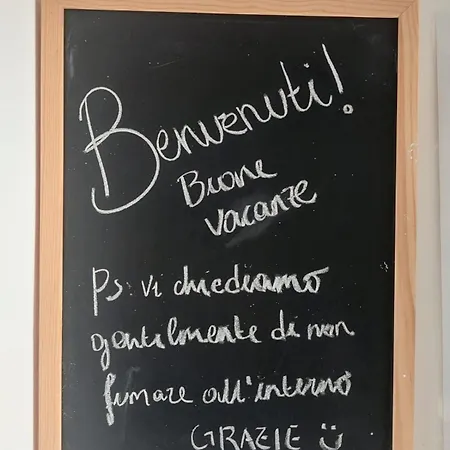 Benvenuti!
Buone
vacanze
Ps: vi chiediamo
gentilmente di non
fumare all'interno
GRAZIE ü